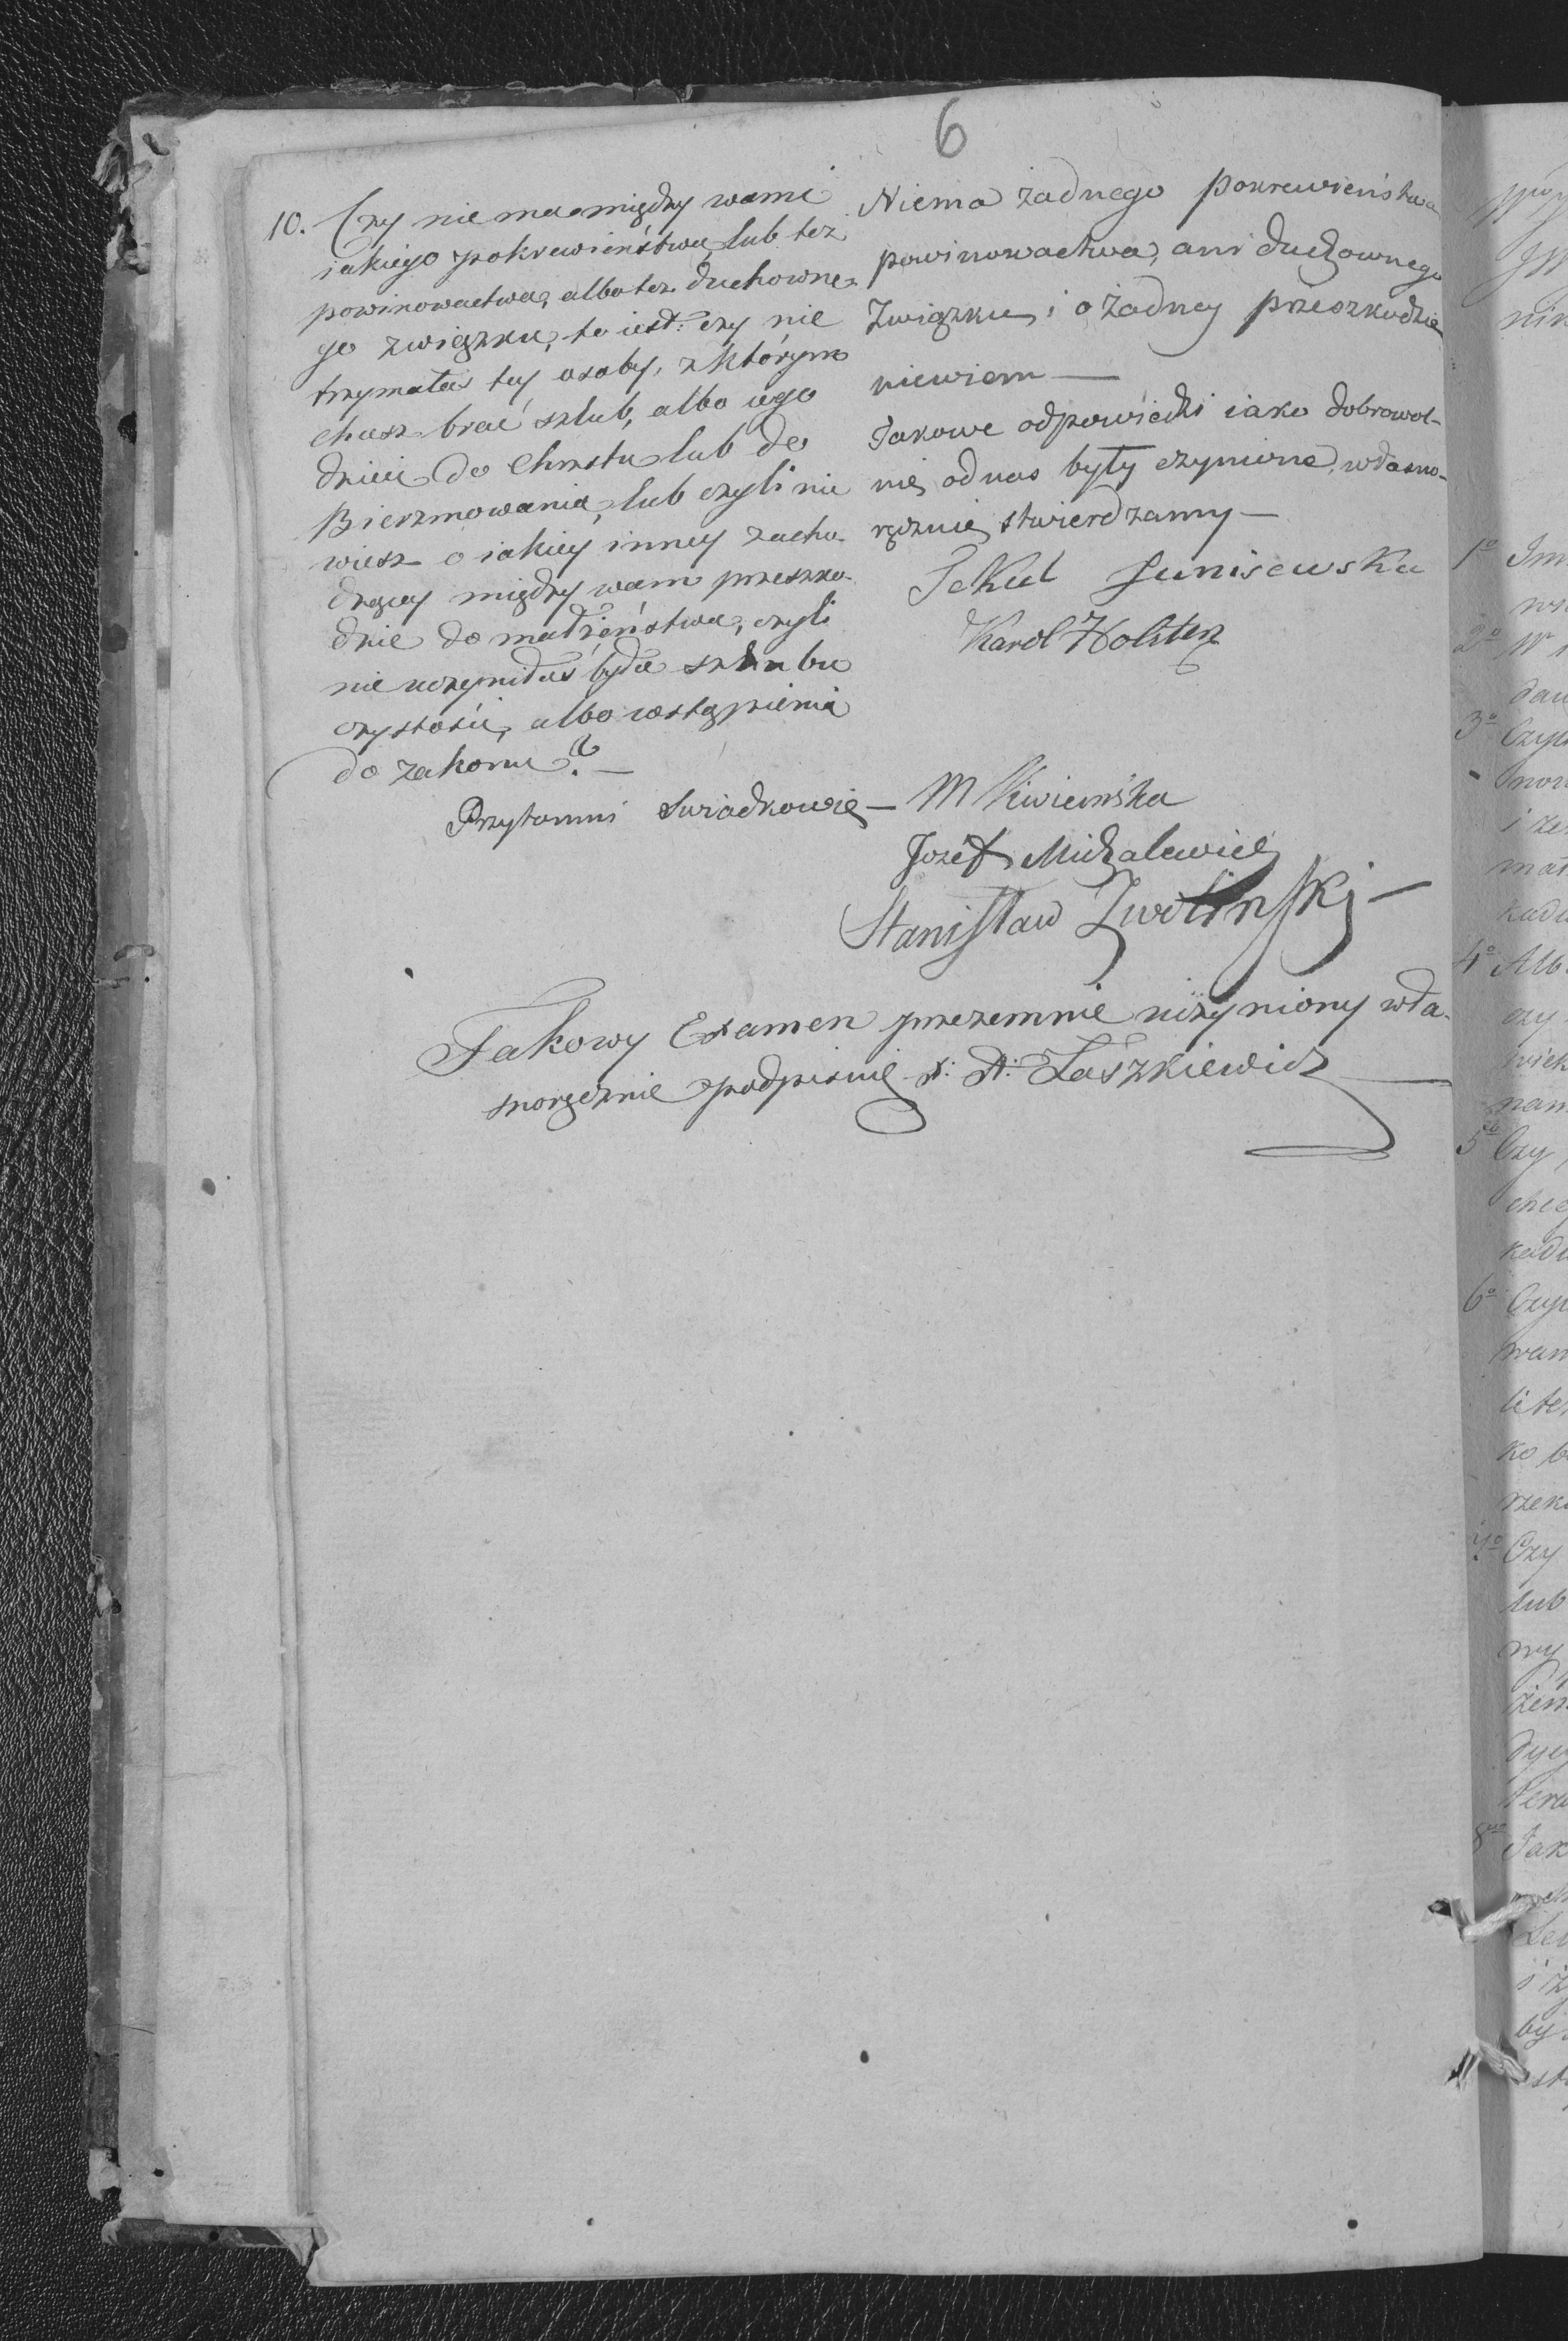 6
10. Czy nie ma między wami
iakiego pokrewieństwa, lub też
powinowactwa, albo też duchowne-
go związku, to iest: czy nie
trzymałaś tey osoby, z którym
chcesz brać szlub, albo iego
dzieci do Chrztu lub do
Bierzmowania, lub czyli nie
wiesz o iakiey inney zacho-
dzącey między wami przeszko-
dzie do małżeństwa, czyli
nie uczyniłaś byda szlubu
czystości, albo wstąpienia
do zakonu?—
Niema żadnego pokrewieństwa
powinowactwa, ani duchownego
Związku, i o żadney przeszkodzie
niewiem—
Jakowe odpowiedzi iako dobrowol-
nie od nas były czynione, własno-
ręcznie stwierdzamy—
Tekla Juniscwska
Karol Holsten
Przytomni Swiadkowie— M Kiwieńska
Jozéf Michalewicz
Stanisław Zwolinski—
Takowy Examen przezemnie uczyniony wła-
snoręcznie podpisuię x: A: Łaszkiewicz—
1º
2º W
3º
4º Alb
czy
nam
5to Czy
6º Czyl
7º Czy
lub
8vo Jak